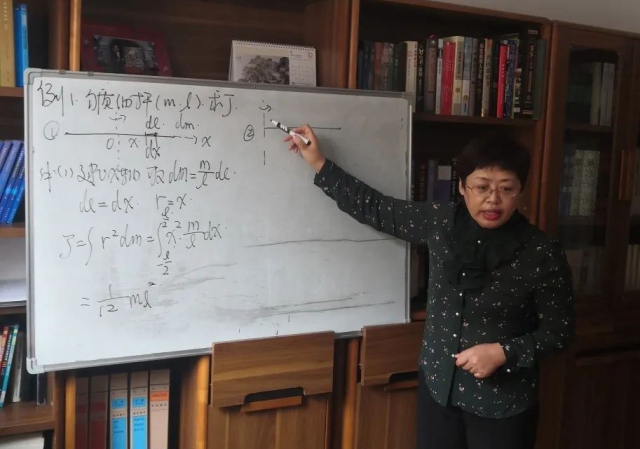 例1. 匀质细杆(m, l). 求J.
① dl dm
0 x dx x
②
解:(1) 建0x轴如 取dm=m/l dl.
dl=dx. r=x.
J=∫r²dm=∫_{-l/2}^{l/2} x² m/l dx.
=1/12 ml²